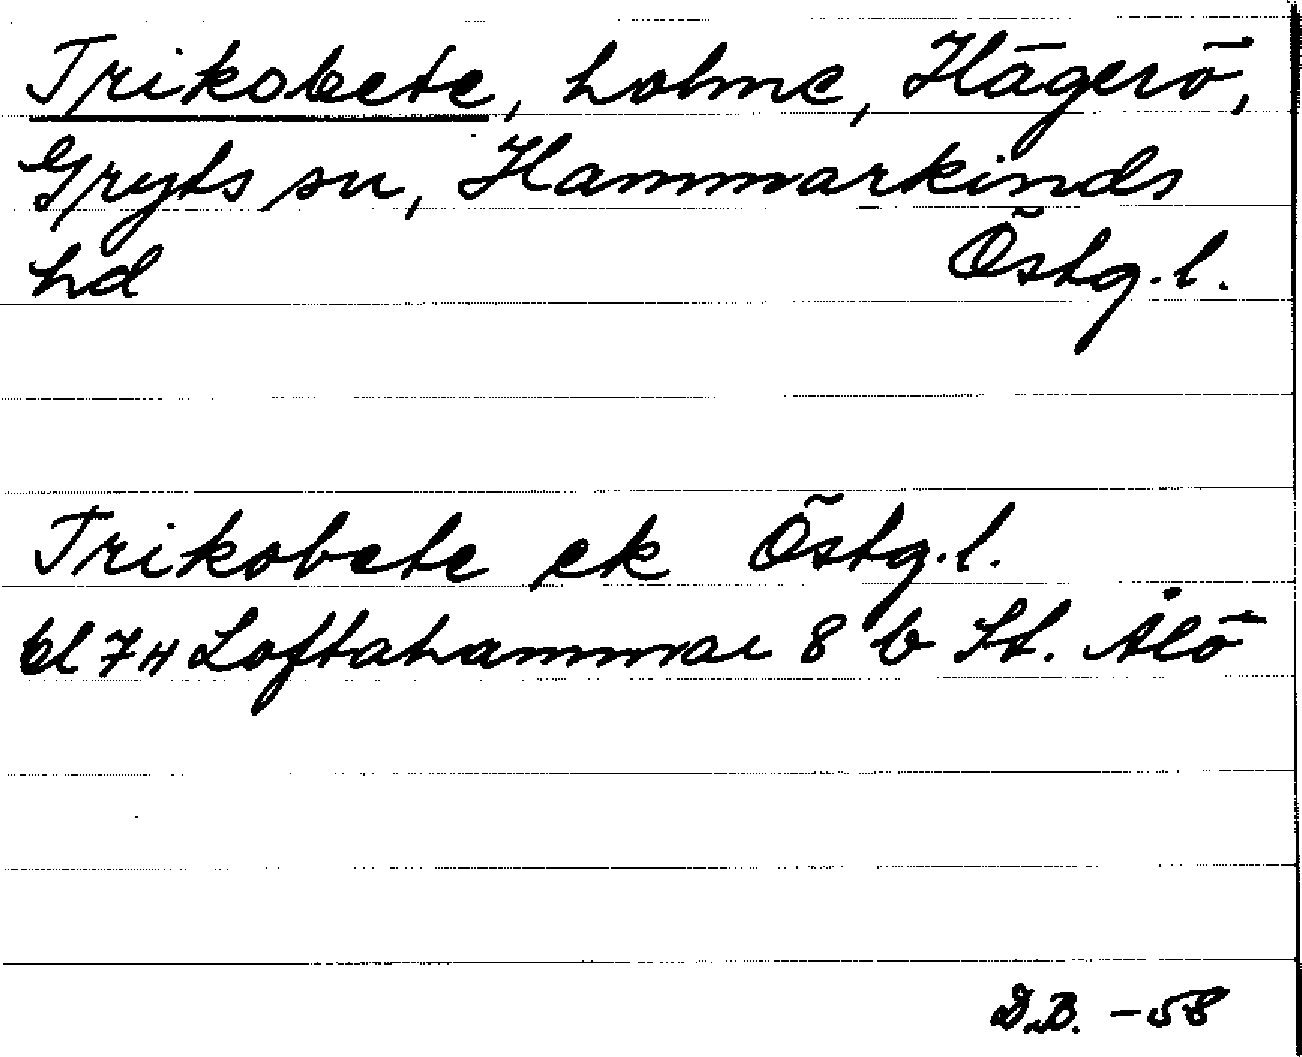 Trikobete, holme, Hägerö,
Gryts sn, Hammarkinds
hd Östg.l.
Trikobete ek Östg.l.
bl 7H Loftahammar 8 b St. Ålö
D.B. -58